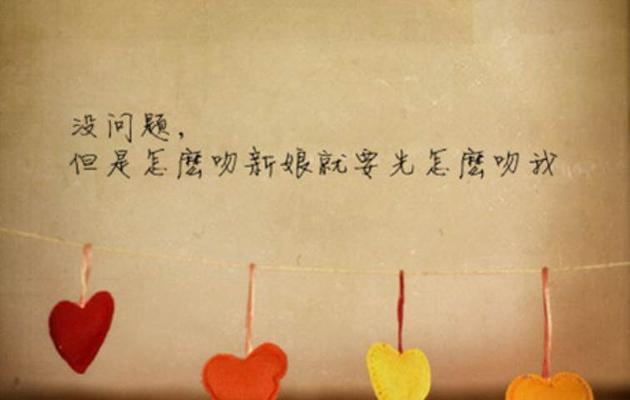 没问题,
但是怎麼吻新娘就要光怎麼吻我